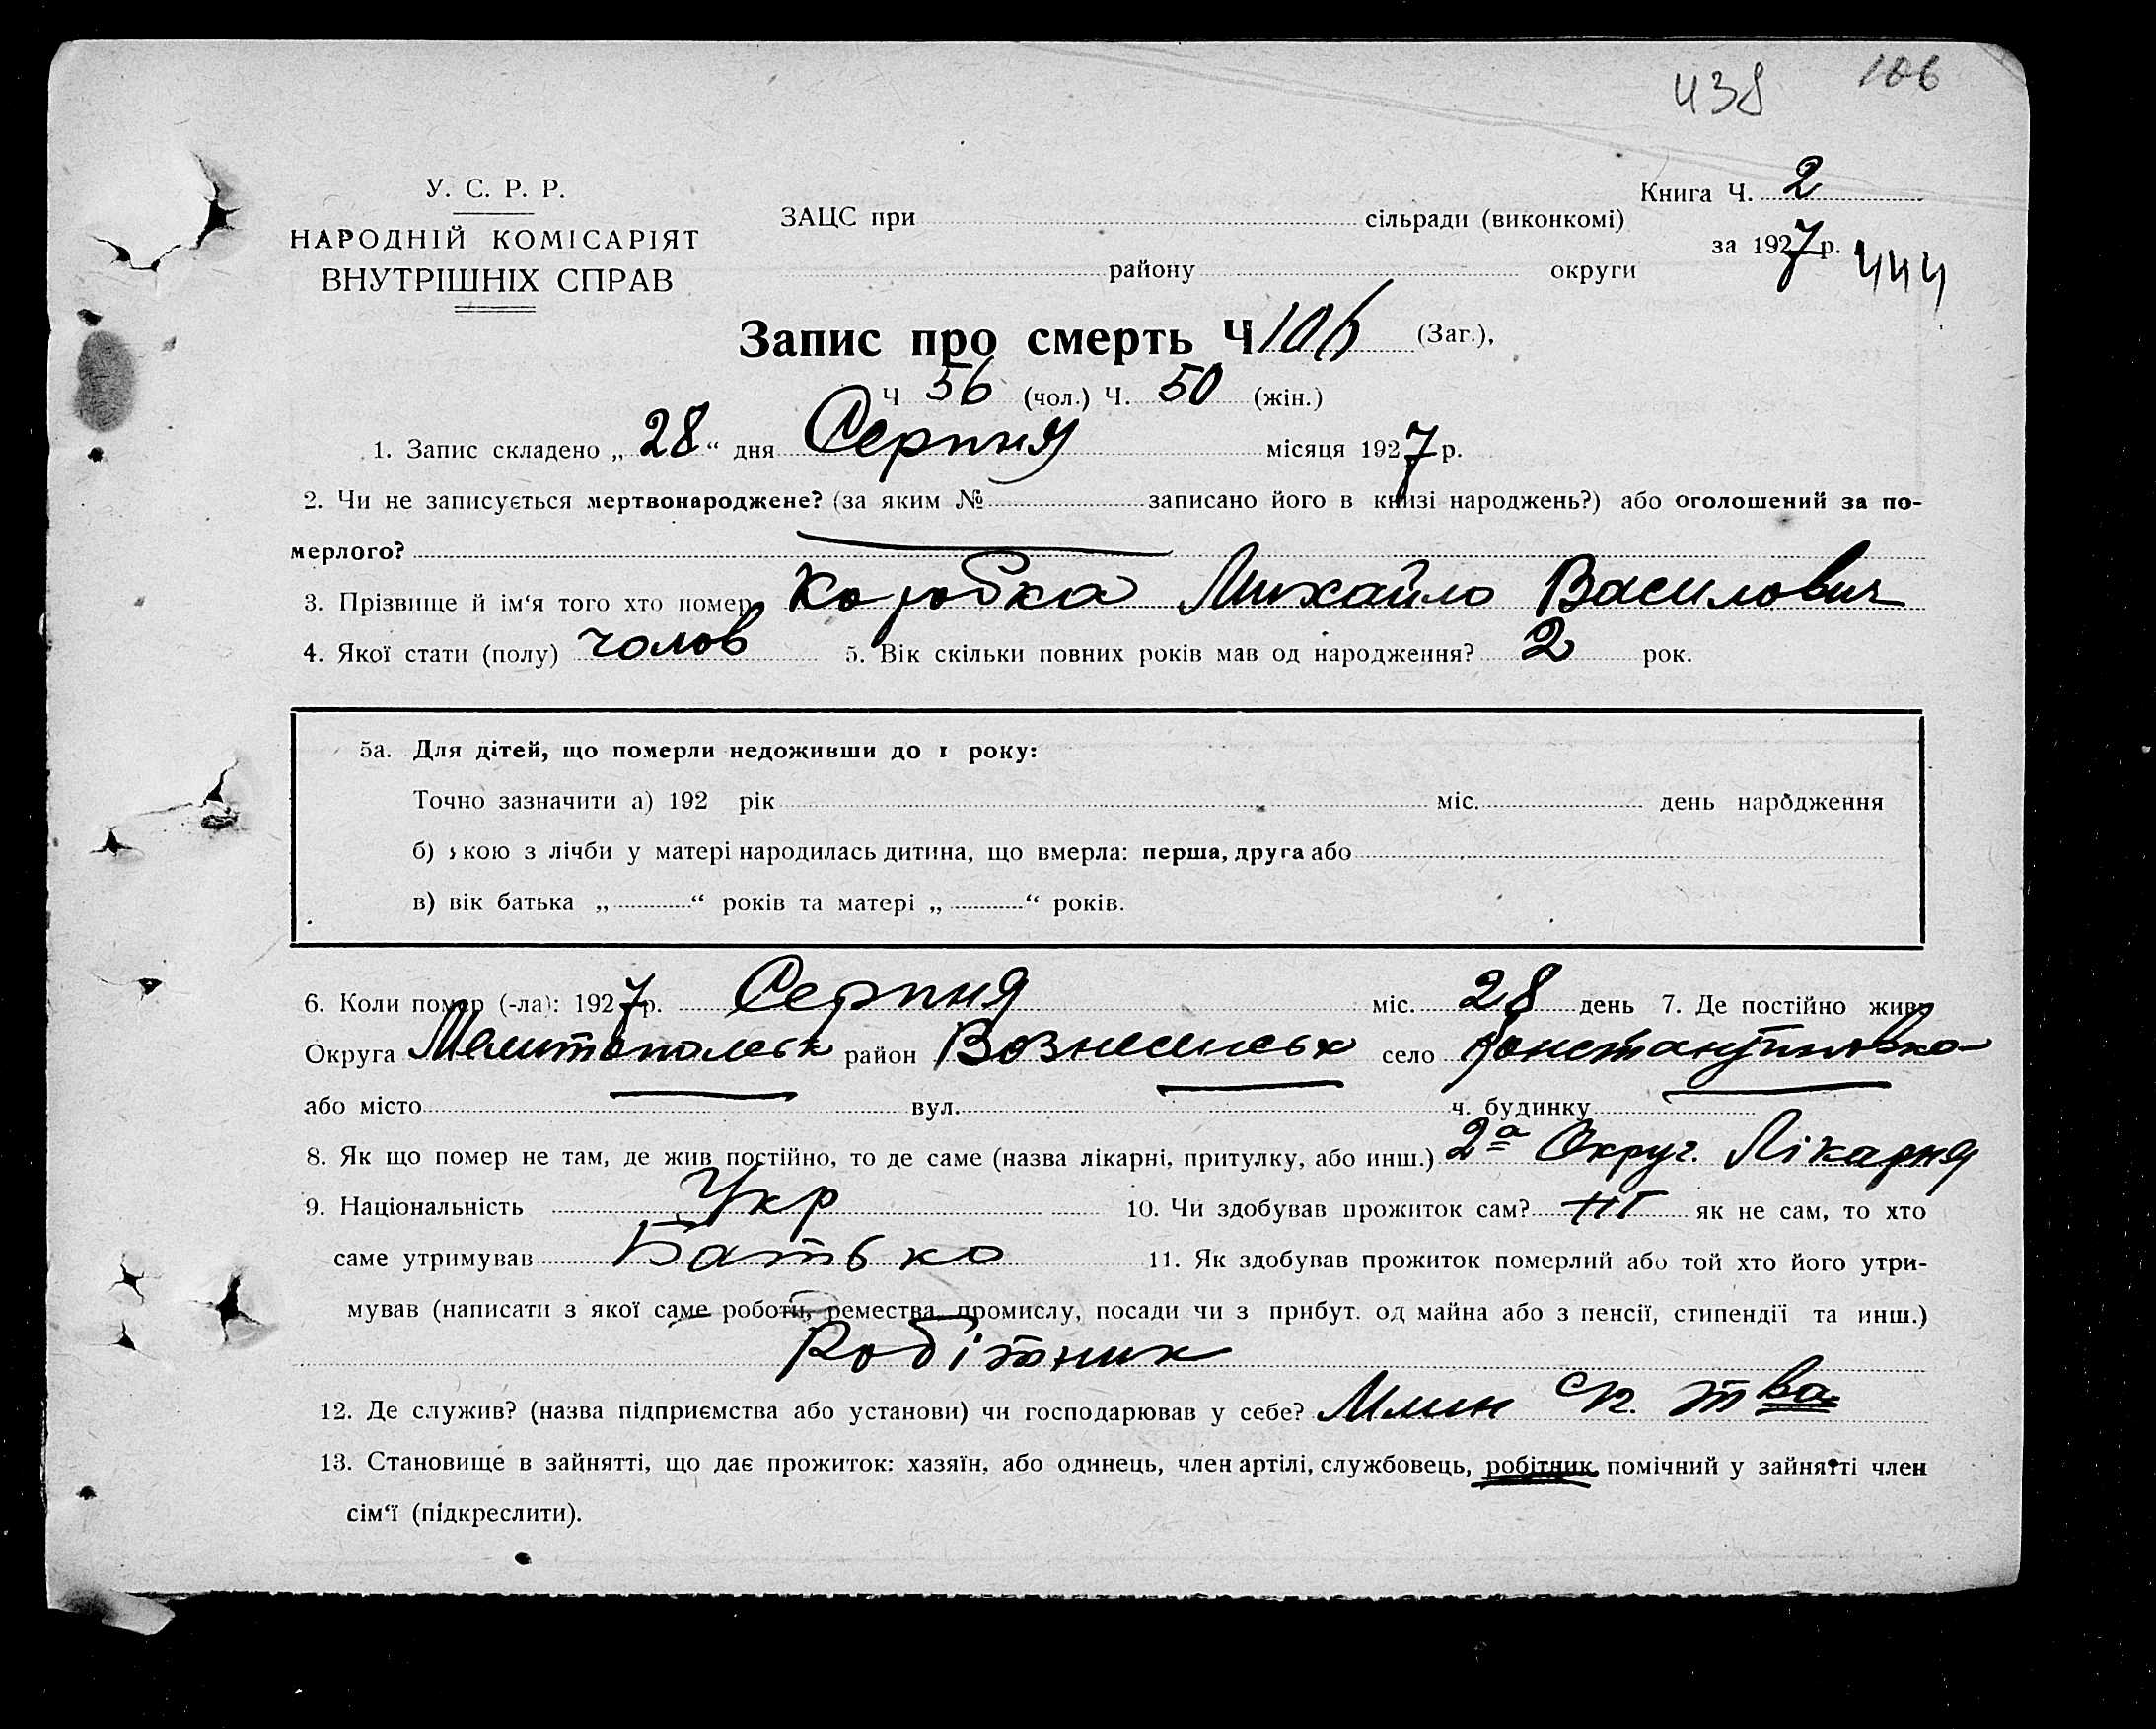 438 106
У. С. Р. Р.
НАРОДНІЙ КОМІСАРІЯТ
ВНУТРІШНІХ СПРАВ
ЗАЦС при сільради (виконкомі)
району округи
Книга Ч. 2
за 1927 р. 444
Запис про смерть Ч 106 (Заг.),
Ч 56 (чол.) Ч. 50 (жін.)
1. Запис складено „ 28 “ дня Серпня місяця 1927 р.
2. Чи не записується мертвонароджене? (за яким № записано його в книзі народжень?) або оголошений за по-
мерлого?
3. Прізвище й ім‘я того хто помер Коробка Михайло Василович
4. Якої стати (полу) чолов 5. Вік скільки повних років мав од народження? 2 рок.
5а. Для дітей, що померли недоживши до 1 року:
Точно зазначити а) 192 рік міс. день народження
б) якою з лічби у матері народилась дитина, що вмерла: перша, друга або
в) вік батька „ “ років та матері „ “ років.
6. Коли помер (-ла): 1927 р. Серпня міс. 28 день 7. Де постійно жив
Округа Мелитопольськ район Вознесенськ село Константиновка
або місто вул. ч. будинку
8. Як що помер не там, де жив постійно, то де саме (назва лікарні, притулку, або инш.) 2а Округ. Лікарня
9. Національність Укр 10. Чи здобував прожиток сам? ні як не сам, то хто
саме утримував Батько 11. Як здобував прожиток померлий або той хто його утри-
мував (написати з якої саме роботи, ремества, промислу, посади чи з прибут. од майна або з пенсії, стипендії та инш.)
Робітник
12. Де служив? (назва підприємства або установи) чи господарював у себе? Млин Сп. т ва
13. Становище в зайнятті, що дає прожиток: хазяїн, або одинець, член артілі, службовець, робітник, помічний у зайнятті член
сім‘ї (підкреслити).